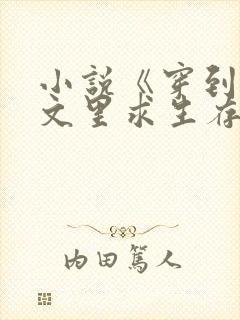 小说《穿到
文里求生存
内田篤人